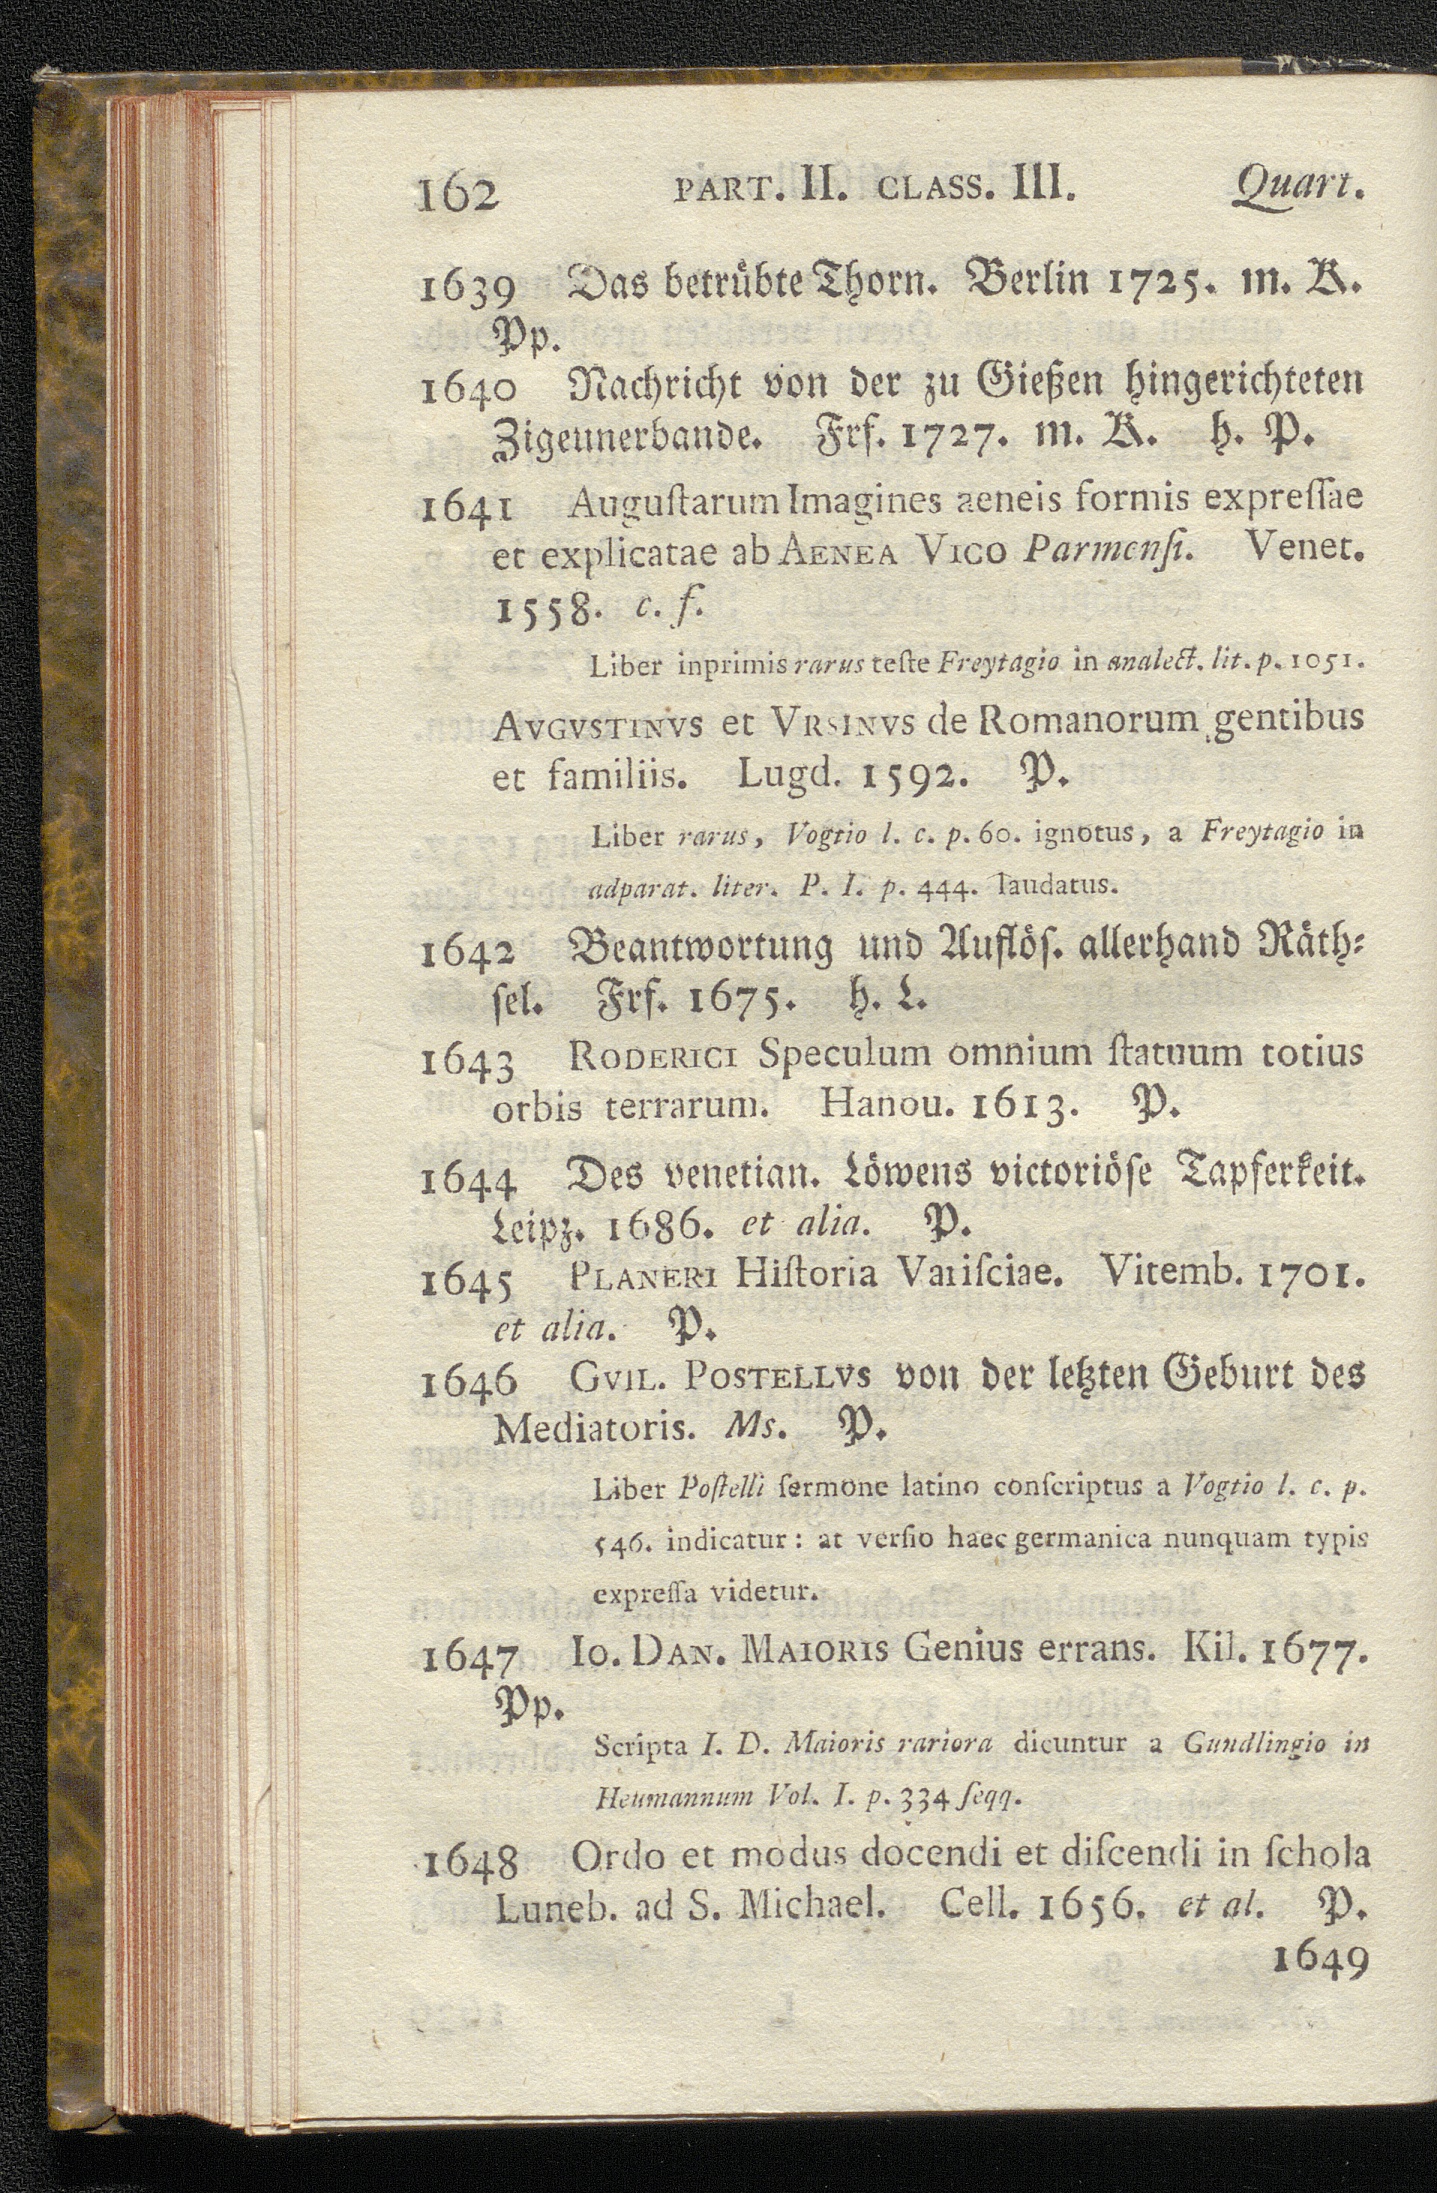 162 PART. II. CLASS. III. Quart.
1639 Das betrübte Thorn. Berlin 1725. m. K.
Pp.
1640 Nachricht von der zu Gießen hingerichteten
Zigeunerbande. Frf. 1727. m. K. h. P.
1641 Auguſtarum Imagines aeneis formis expreſſae
et explicatae ab AENEA VICO Parmenſi. Venet.
1558. c. f.
Liber inprimis rarus teſte Freytagio in analect. lit. p. 1051.
AVGVSTINVS et VRSINVS de Romanorum gentibus
et familiis. Lugd. 1592. P.
Liber rarus, Vogtio l. c. p. 60. ignotus, a Freytagio in
adparat. liter. P. I. p. 444. laudatus.
1642 Beantwortung und Auflöſ. allerhand Räth⸗
ſel. Frf. 1675. h. L.
1643 RODERICI Speculum omnium ſtatuum totius
orbis terrarum. Hanou. 1613. P.
1644 Des venetian. Löwens victoriöſe Tapferkeit.
Leipz. 1686. et alia. P.
1645 PLANERI Hiſtoria Variſciae. Vitemb. 1701.
et alia. P.
1646 GVIL. POSTELLVS von der letzten Geburt des
Mediatoris. Ms. P.
Liber Poſtelli ſermone latino conſcriptus a Vogtio l. c. p.
546. indicatur: at verſio haec germanica nunquam typis
expreſſa videtur.
1647 IO. DAN. MAIORIS Genius errans. Kil. 1677.
Pp.
Scripta I. D. Maioris rariora dicuntur a Gundlingio in
Heumannum Vol. I. p. 334 ſeqq.
1648 Ordo et modus docendi et diſcendi in ſchola
Luneb. ad S. Michael. Cell. 1656. et al. P.
1649